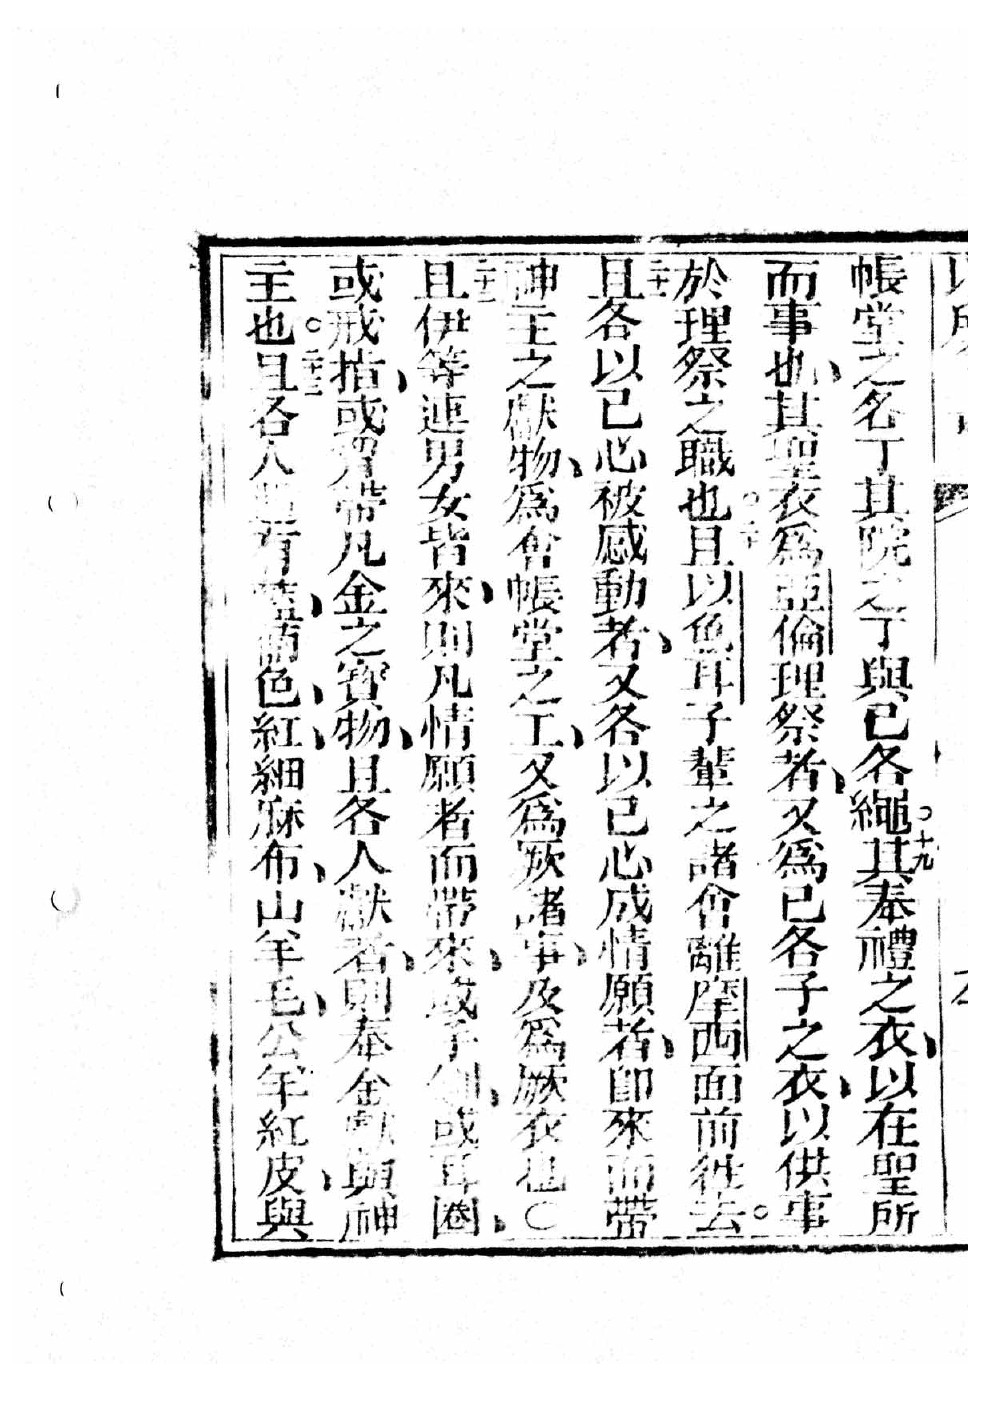 帳堂之各丁其院之丁與已各繩○十九其奉禮之衣、以在聖所
而事也、其聖衣爲亞倫理祭者、又爲已各子之衣、以供事
於理祭之職也○二十且以色耳子輩之諸會離摩西面前往去○
二十一且各以已心被感動者、又各以已心成情願者、卽來而帶
神主之獻物、爲會帳堂之工、又爲厥諸事、及爲厥衣也○
二十二且伊等連男女皆來、則凡情願者而帶來、或手釧、或耳圈、
或戒指、或帶凡金之寶物、且各人獻者、則奉金獻與神
主也○二十三且各人有藍、色、紅、細麻布、山羊毛、公羊紅皮、與